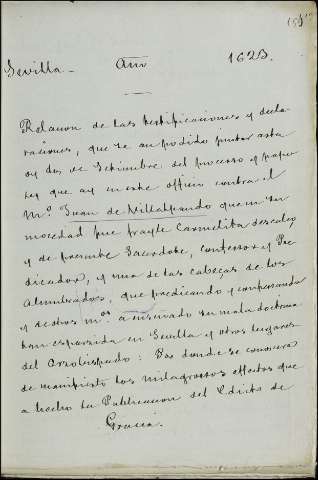 Sevilla- Año 1623.
Relacion de las testificaciones y decla
raciones, que se an podido juntar asta
oy dos de Setiembre del processo y pape
les que ay en este officio contra el
Mº. Juan de Villalpando que en su
mocedad fue frayle Carmelita descalço
y de presente Sacerdote, confessor y Pre
dicador, y una de las cabeças de los
Alumbrados, que predicando y confesando
y de otros mºs. a enseñado su mala doctrina
bien esparcida en Sevilla y otros lugares
del Arzobispado: Por donde se conocera
de manifiesto los milagrosos effectos que
a hecho la Publicacion del Edicto de
Gracia.